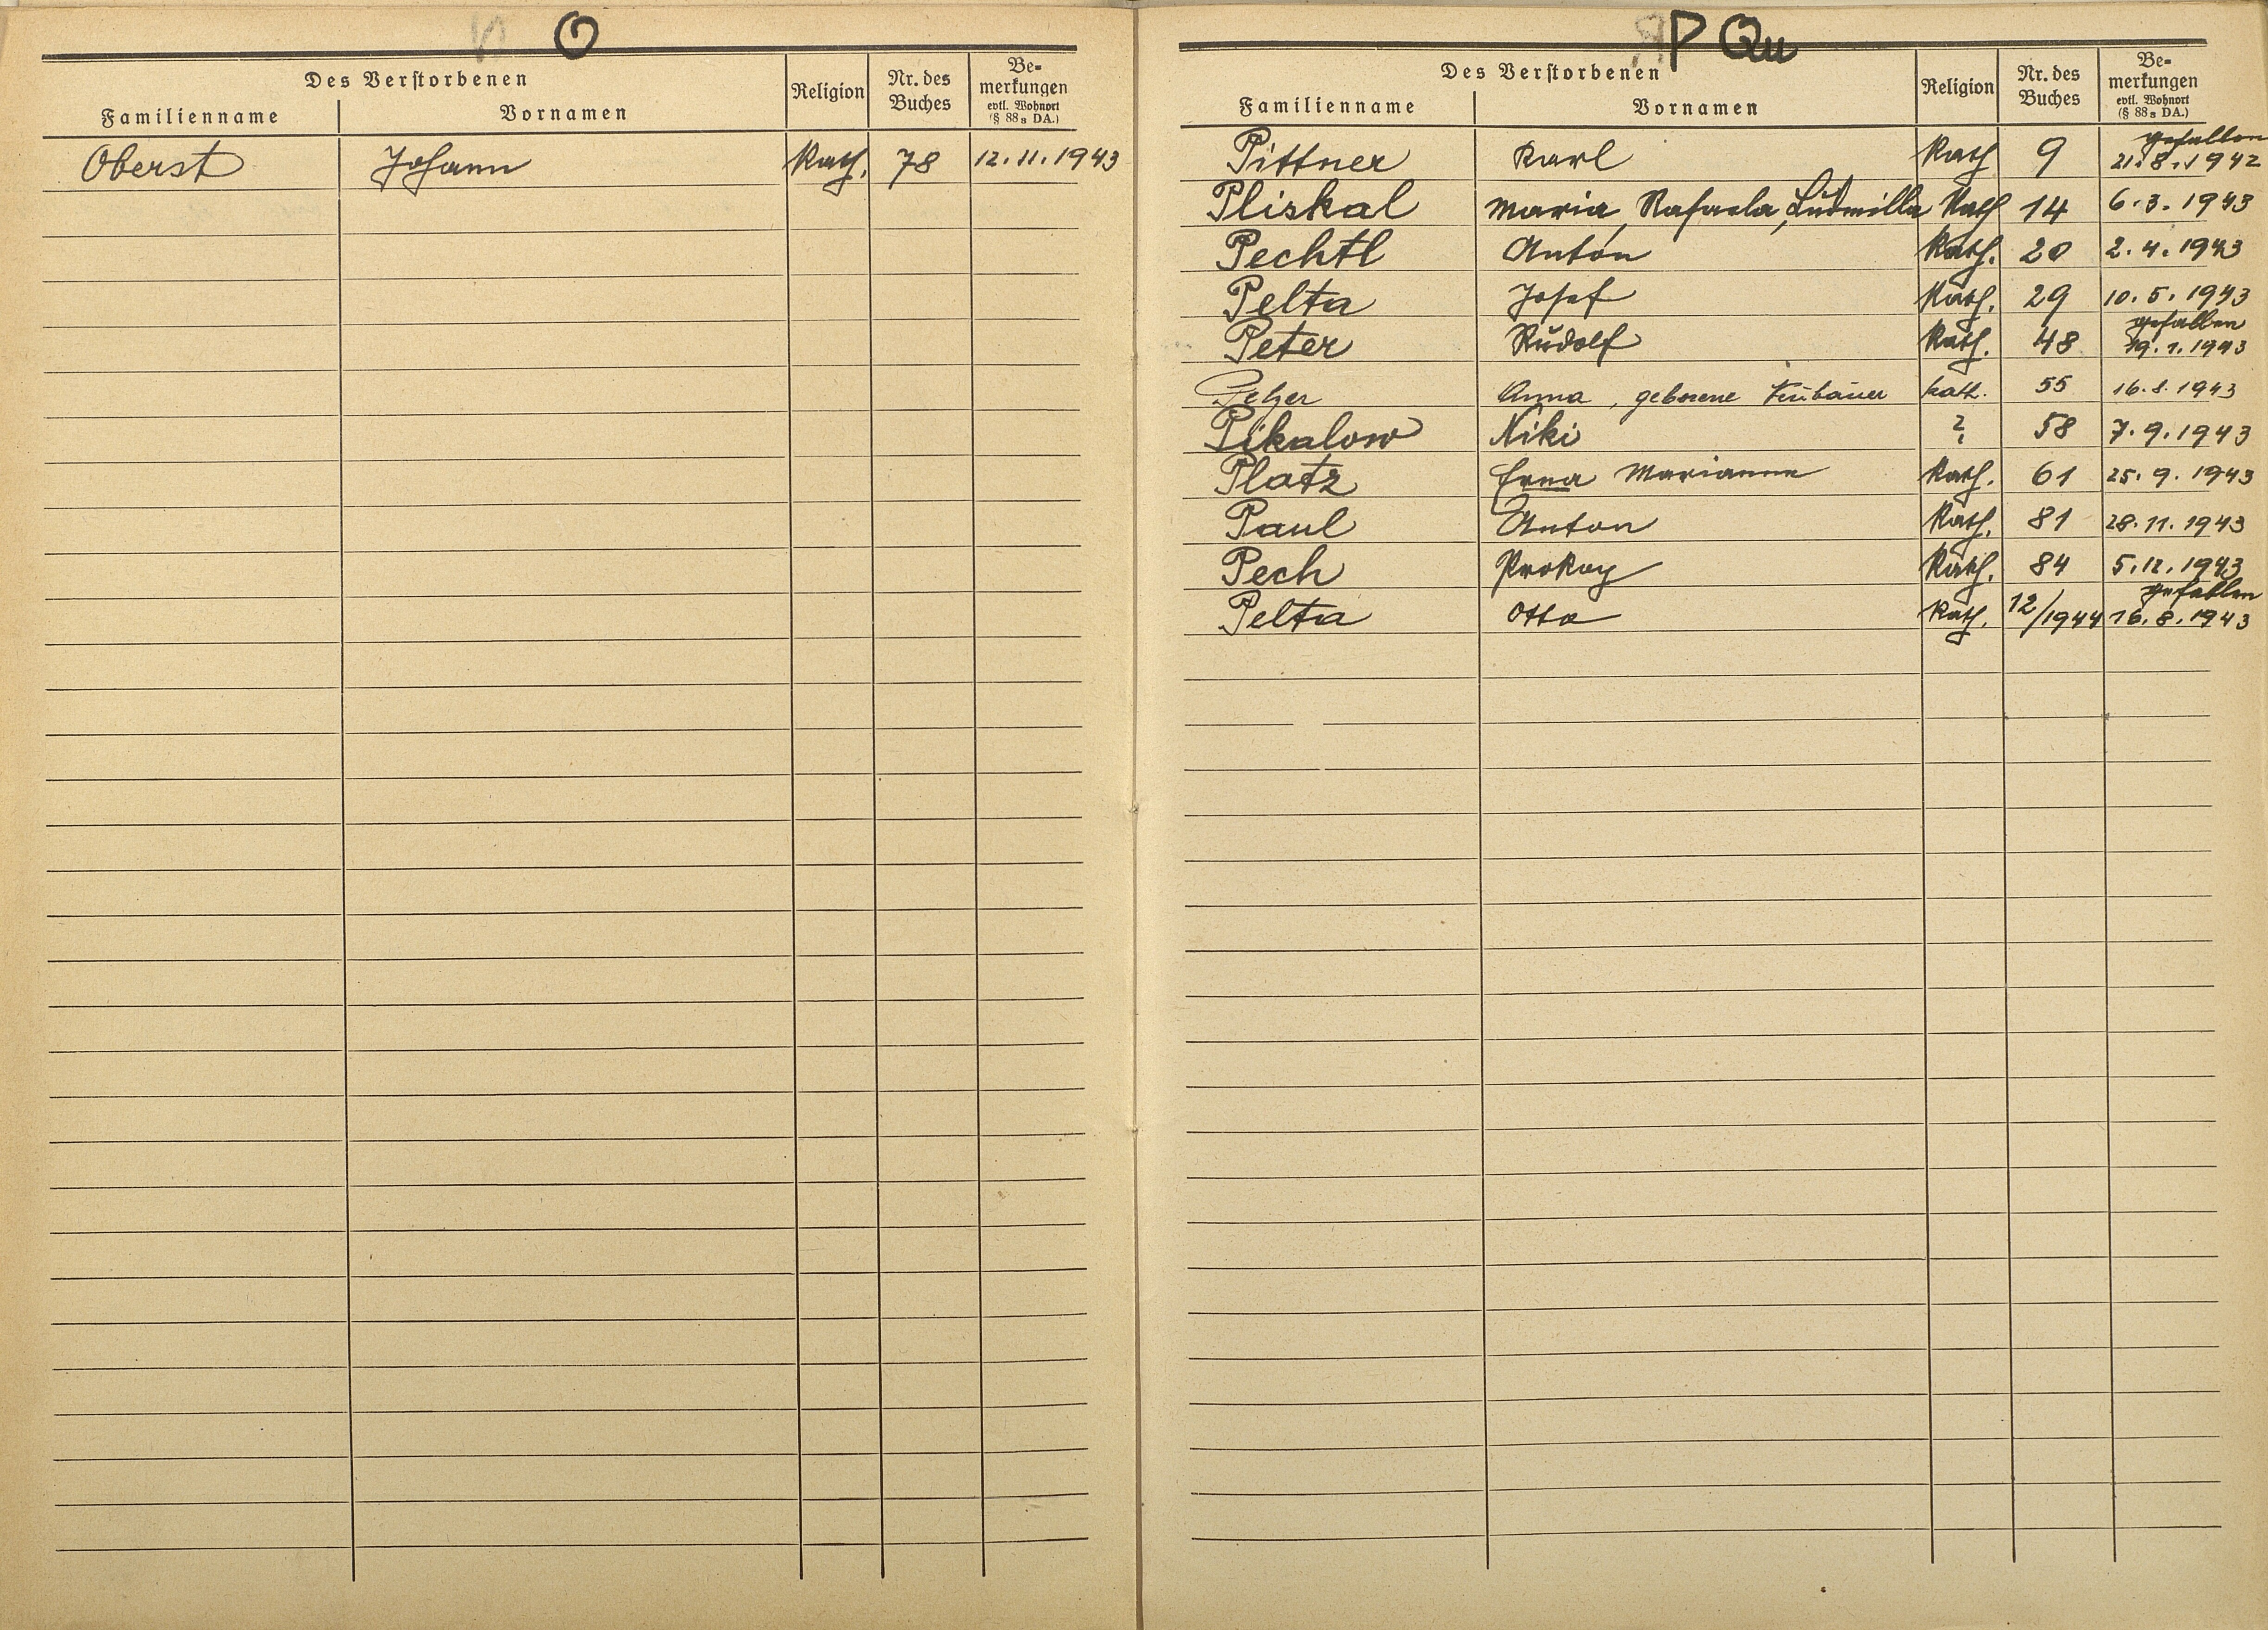 O
Des Verstorbenen
Familienname Vornamen Religion Nr. des Buches Be-merkungen evtl. Wohnort (§ 88a DA.)
Oberst Johann Kath. 78 12.11.1943
P Qu
Des Verstorbenen
Familienname Vornamen Religion Nr. des Buches Be-merkungen evtl. Wohnort (§ 88a DA.)
Pittner Karl Kath 9 gefallen 21.8.1942
Pliskal Maria, Rafaela, Ludmilla Kath 14 6.3.1943
Pechtl Anton Kath. 20 2.4.1943
Pelta Josef Kath. 29 10.5.1943
Peter Rudolf Kath. 48 gefallen 19.1.1943
Anna, geborene kath. 55 16.8.1943
Pikalow Niki ? 58 7.9.1943
Platz Erna Marianne Kath. 61 25.9.1943
Paul Anton Kath. 81 28.11.1943
Pech Prokop Kath. 84 5.12.1943
Pelta Otto Kath. 12/1944 gefallen 16.8.1943